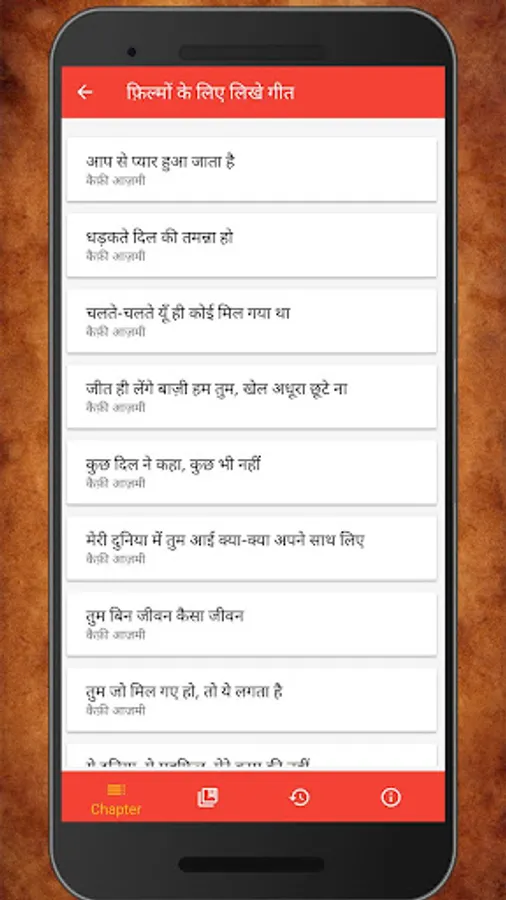 फ़िल्मों के लिए लिखे गीत
आप से प्यार हुआ जाता है
कैफ़ी आज़मी
धड़कते दिल की तमन्ना हो
कैफ़ी आज़मी
चलते-चलते यूँ ही कोई मिल गया था
कैफ़ी आज़मी
जीत ही लेंगे बाज़ी हम तुम, खेल अधूरा छूटे ना
कैफ़ी आज़मी
कुछ दिल ने कहा, कुछ भी नहीं
कैफ़ी आज़मी
मेरी दुनिया में तुम आई क्या-क्या अपने साथ लिए
कैफ़ी आज़मी
तुम बिन जीवन कैसा जीवन
कैफ़ी आज़मी
तुम जो मिल गए हो, तो ये लगता है
कैफ़ी आज़मी
Chapter